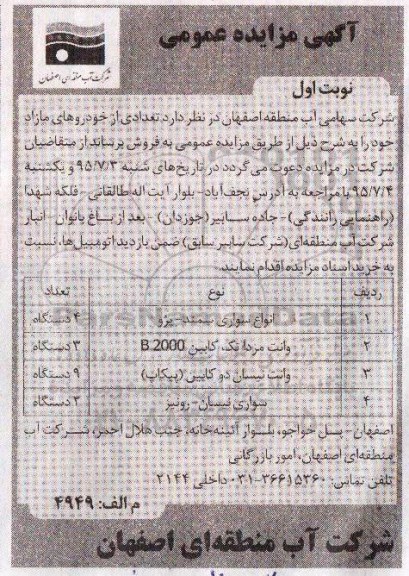 آگهی مزایده عمومی
شرکت آب منطقه‌ای اصفهان
نوبت اول
شرکت سهامی آب منطقه اصفهان در نظر دارد تعدادی از خودروهای مازاد
خود را به شرح ذیل از طریق مزایده عمومی به فروش برساند از متقاضیان
شرکت در مزایده دعوت می گردد در تاریخ‌های شنبه ۹۵/۷/۳ و یکشنبه
۹۵/۷/۴ با مراجعه به آدرس نجف‌آباد- بلوار آیت اله طالقانی - فلکه شهدا
(راهنمایی رانندگی)- جاده سابیر (جوزدان)- بعد از باغ بانوان- انبار
شرکت آب منطقه‌ای (شرکت سابیر سابق) ضمن بازدید اتومبیل‌ها، نسبت
به خرید اسناد مزایده اقدام نمایند.
ردیف نوع تعداد
۱ انواع سواری سمند- پژو ۴ دستگاه
۲ وانت مزدا تک کابین B.2000 ۳ دستگاه
۳ وانت نیسان دو کابین (پیکاپ) ۹ دستگاه
۴ سواری نیسان- رونیز ۲ دستگاه
اصفهان- پل خواجو، بلوار آئینه‌خانه، جنب هلال احمر، شرکت آب
منطقه‌ای اصفهان، امور بازرگانی
تلفن تماس: ۳۶۶۱۵۳۶۰-۰۳۱ داخلی ۲۱۴۴
م الف: ۴۹۴۹
شرکت آب منطقه‌ای اصفهان